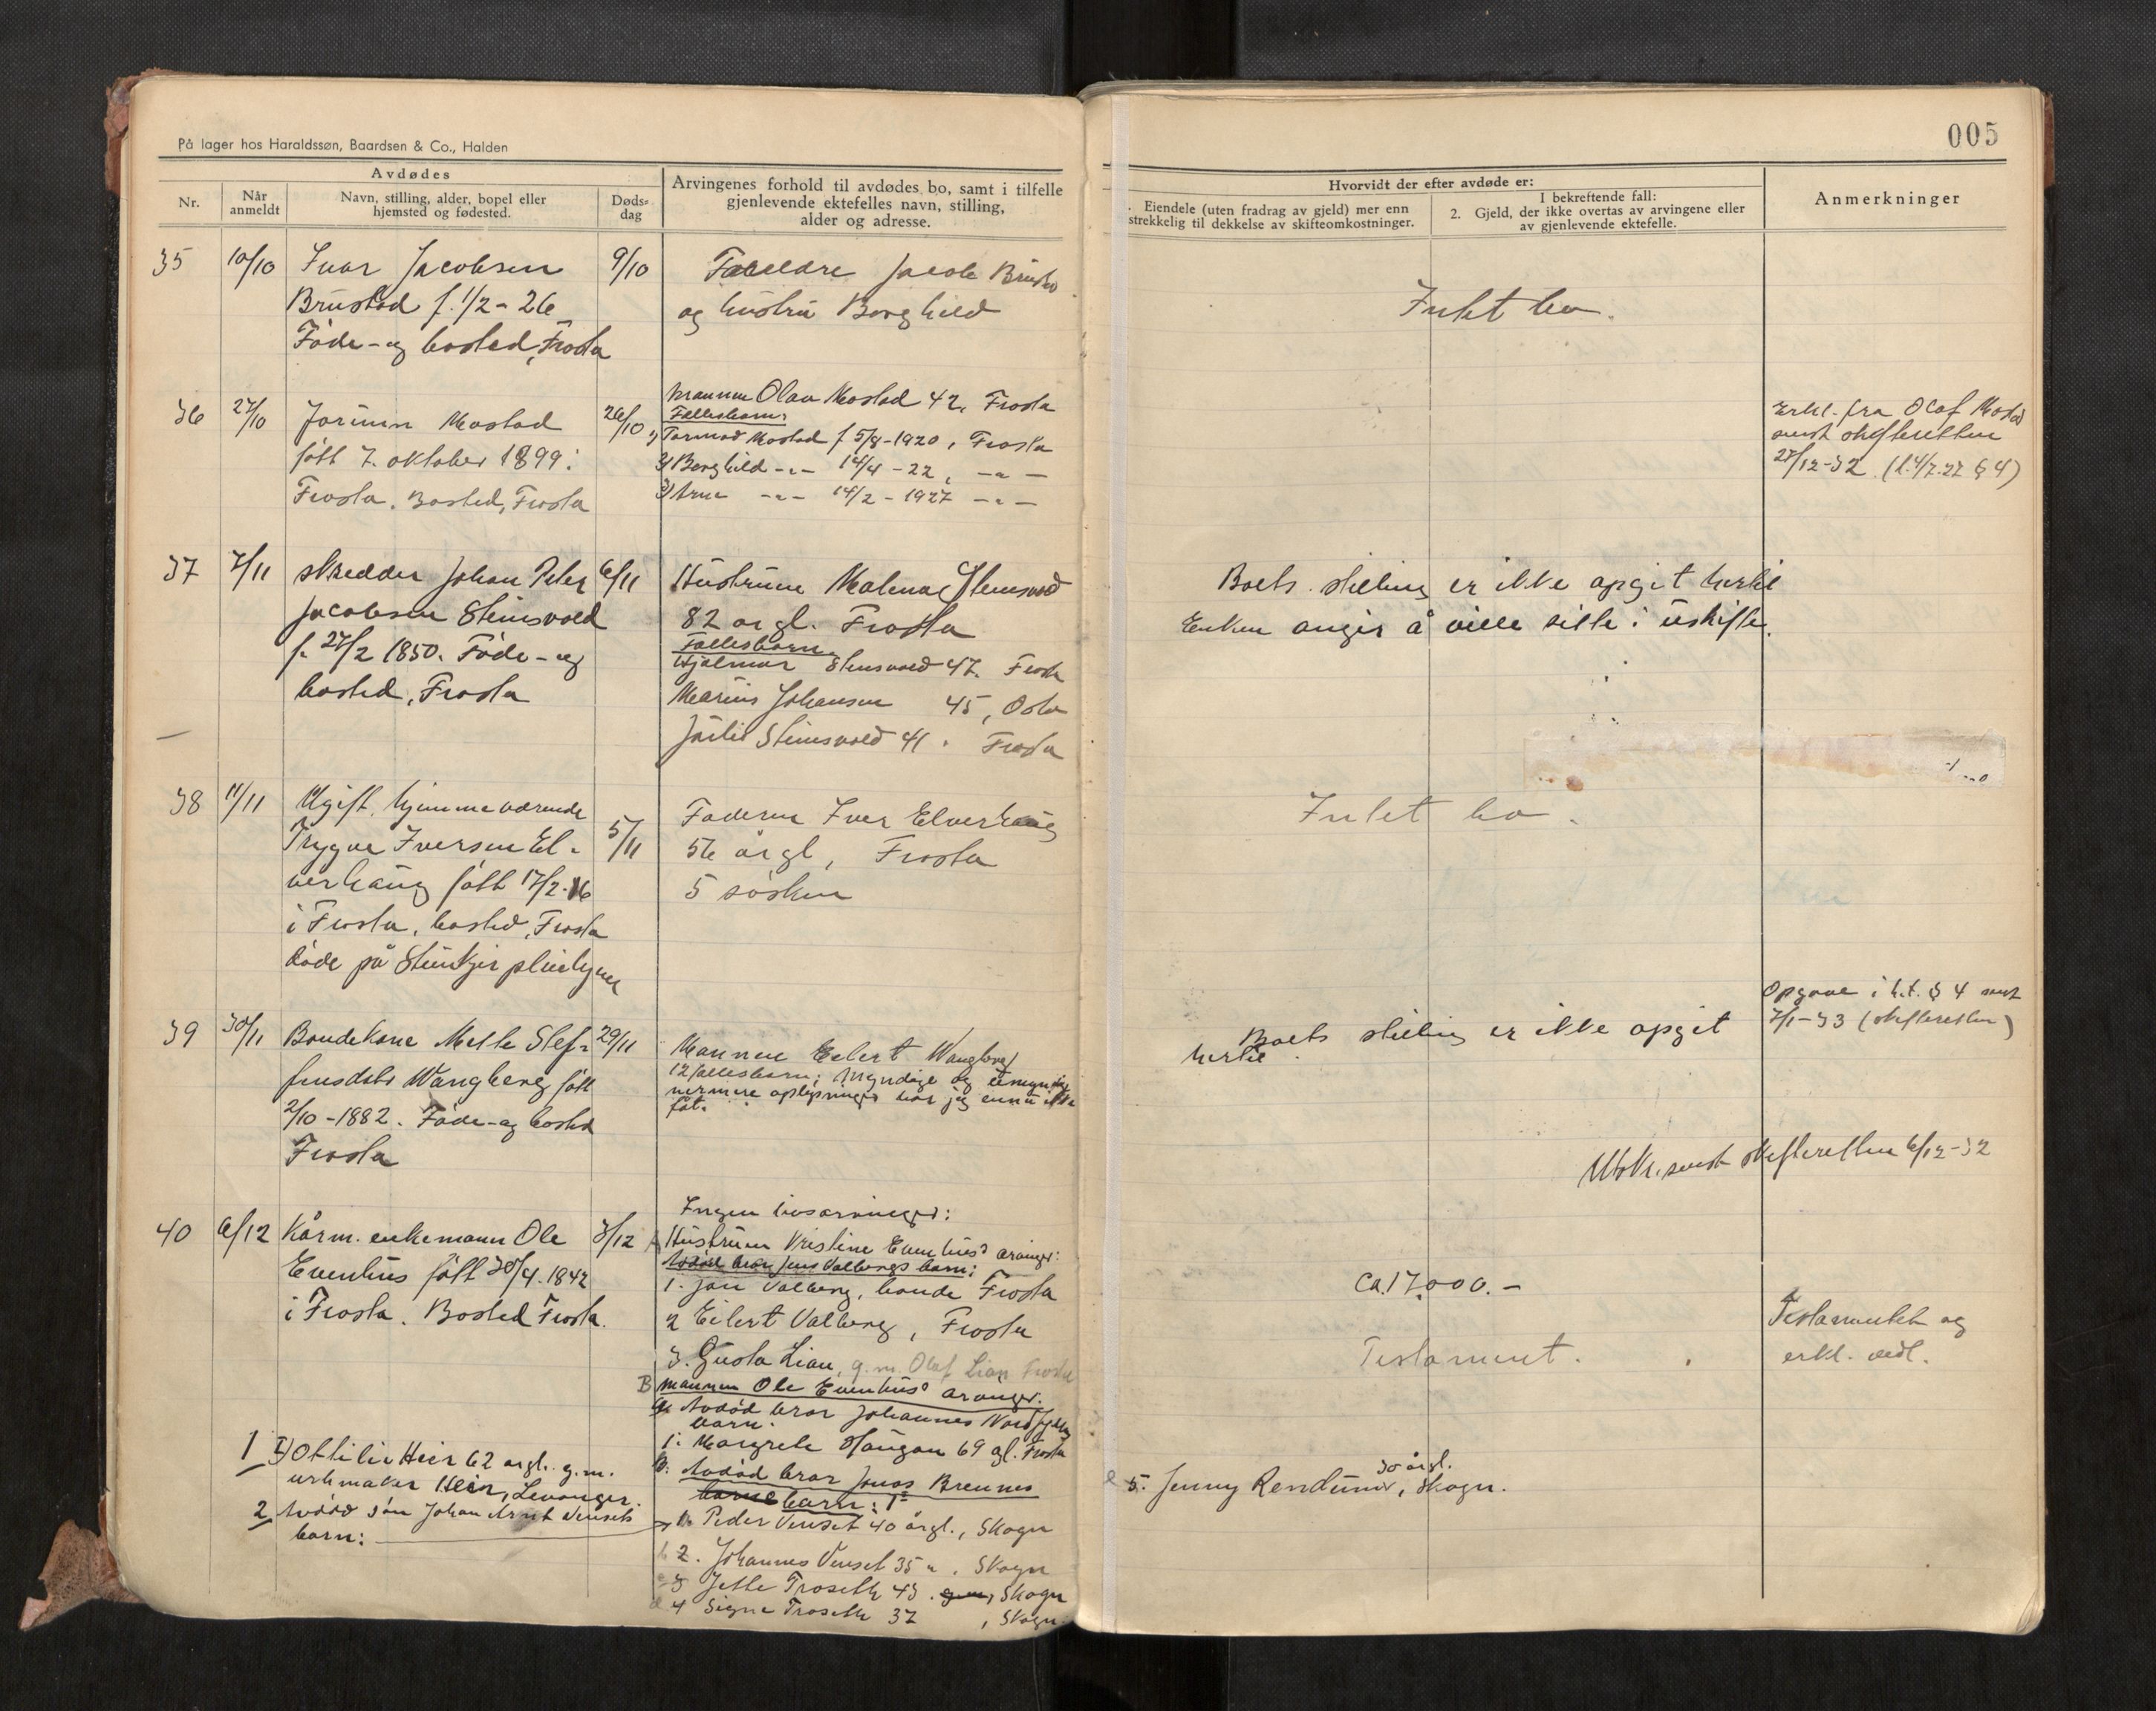 På lager hos Haraldssøn, Baardsen & Co., Halden
005
Avdødes
Nr.
Når anmeldt
Navn, stilling, alder, bopel eller hjemsted og fødested.
Døds-dag
Arvingenes forhold til avdødes bo, samt i tilfelle
gjenlevende ektefelles navn, stilling,
alder og adresse.
Hvorvidt der efter avdøde er:
Eiendele (uten fradrag av gjeld) mer enn
strekkelig til dekkelse av skifteomkostninger.
I bekreftende fall:
2. Gjeld, der ikke overtas av arvingene eller
av gjenlevende ektefelle.
Anmerkninger
35 10/10 Ivar Jacobsen 9/10
Brustad f. 1/2 - 26
Føde- og bosted, Frosta
Foreldre Jacob
og hustru Borghild
Intet bo.
36 27/10 Jorunn Mostad 26/10
født 7. oktober 1899 i
Frosta. Bosted, Frosta
Mannen Olav Mostad 42, Frosta
Fellesbarn:
1) Tormod Mostad f 5/8-1920, Frosta
2) Borghild -"- 14/4 - 22, -"-
3) Arne -"- 14/2 - 1927 -"-
Erkl. fra Olaf Mostad
sendt skifteretten
27/12-32. (l. 4/7.27 § 4)
37 7/11 skredder Johan Peter 6/11
Jacobsen Steinsvold
f. 27/2 1850. Føde- og
bosted, Frosta
Hustruen Malena Steinsvold
82 år gl. Frosta
Fellesbarn
Hjalmar Steinsvold 47. Frosta
Marius Johansen 45, Oslo
Steinsvold 41. Frosta
Boets stilling er ikke opgit hertil
Enken angir å ville sitte i uskifte.
38 11/11 Ugift, hjemmeværende
Trygve Iversen El- 5/11
verhaug født 17/2-16
i Frosta, bosted, Frosta
døde på Steinkjer pleiehjem
Faderen Iver Elverhaug
56 år gl, Frosta
5 søsken
Intet bo.
39 30/11 Bondekone Mette Stef- 29/11
fensdatr Wangberg født
2/10 - 1882. Føde- og bosted
Frosta
Mannen Eilert Wangberg
12 fellesbarn; myndige og umyndige
nærmere oplysninger har jeg ennu ikke
fåt.
Boets stilling er ikke opgit
hertil.
Opgave i h.t. § 4 sendt
7/1-33 (skifteretten)
Utskr. sendt skifteretten 6/12-32
40 6/12 Kårm. enkemann Ole 3/12
Evenhus født 30/4.1842
i Frosta. Bosted Frosta.
Ingen livsarvinger:
A Hustruen Kristine Evenhus' arvinger:
Avdød bror Jens Valbergs barn:
1. Jon Valberg, bonde Frosta
2 Eilert Valberg, Frosta
3. Gusta Lian, g.m. Olaf Lian Frosta
B mannen Ole Evenhus' arvinger.
a. Avdød bror Johannes
barn:
1. Margrete Haugan 69 gl. Frosta
b. Avdød bror Jonas Brennes
barn:
1 Ottilie Heir 62 årgl. g.m.
urkmaker Heir, Levanger.
2 Avdød søn Johan Arnt Venset
barn:
1. Peder Venset 40 årgl., Skogn
b 2. Johannes Venset 35 ", Skogn
3 Jette Troseth 43, Skogn
d 4 Signe Troseth 37, Skogn
e 5. Jenny Rendum, 30 årgl. Skogn.
ca. 17.000.-
Testament.
Testamentet og
erkl. vedl.